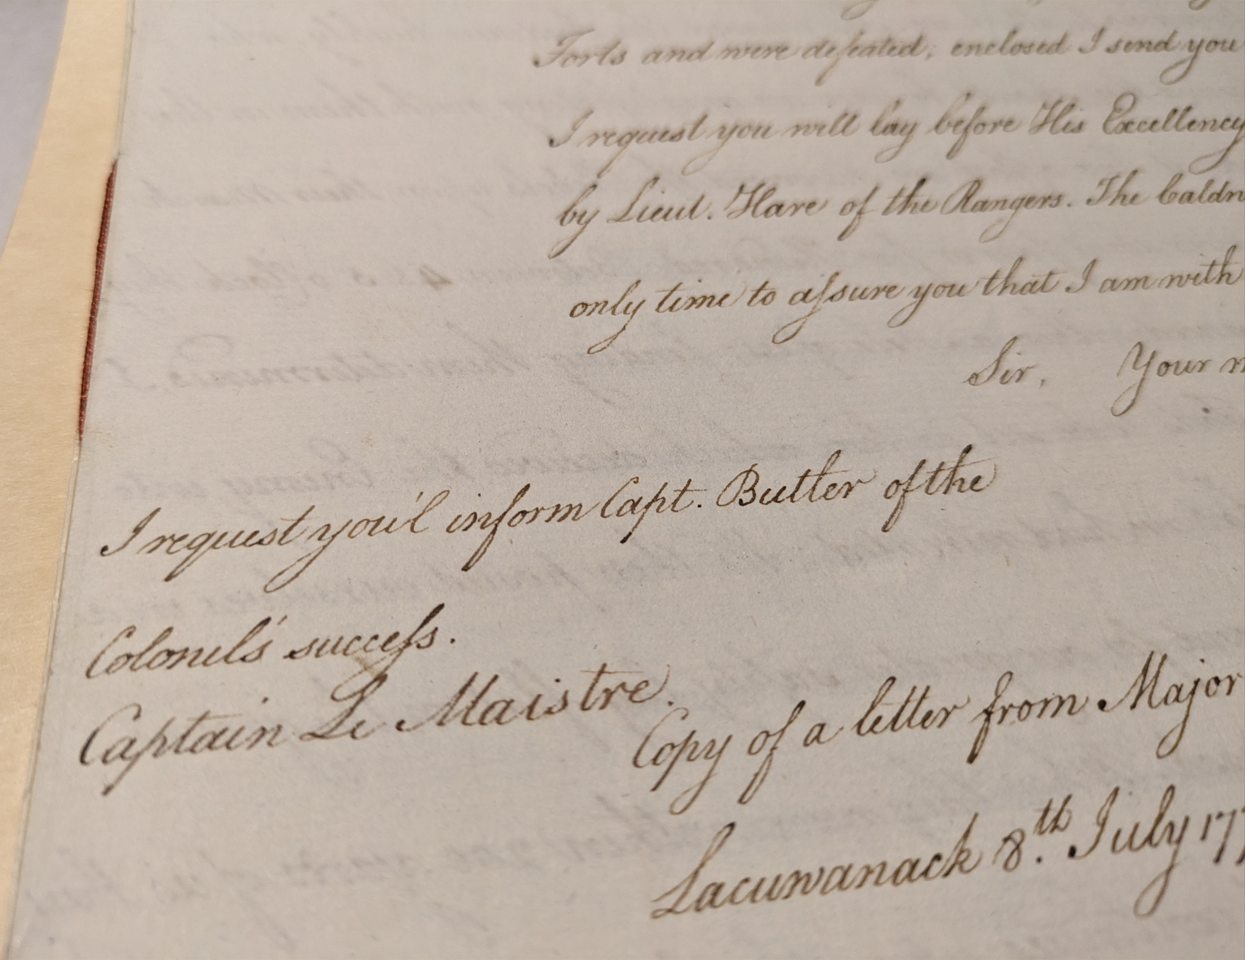 Forts and were defeated; enclosed I send you
I request you will lay before His Excellency
by Lieut. Hare of the Rangers. The
only time to aſsure you that I am with
Sir, Your
I request you'l inform Capt. Butler of the
Colonel's succeſs.
Captain Le Maistre.
Copy of a letter from Major
Lacuwanack 8.th July 177